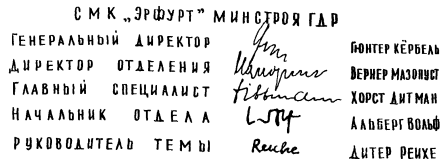 СМК „ЭРФУРТ" МИНСТРОЯ ГДР
ГЕНЕРАЛЬНЫЙ ДИРЕКТОР ГЮНТЕР КЁРБЕЛЬ
ДИРЕКТОР ОТДЕЛЕНИЯ ВЕРНЕР МАЗОПУСТ
ГЛАВНЫЙ СПЕЦИАЛИСТ ХОРСТ ДИТМАН
НАЧАЛЬНИК ОТДЕЛА АЛЬБЕРГ ВОЛЬФ
РУКОВОДИТЕЛЬ ТЕМЫ Reiche ДИТЕР РЕИХЕ